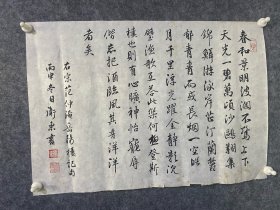 春和景明波澜不驚上下
天光一碧萬頃沙鷗翔集
錦鱗游泳岸芷汀蘭郁
郁青青而或長烟一空皓
月千里浮光躍金静影沉
璧漁歌互答此樂何極登斯
樓也則有心曠神怡寵辱
偕忘把酒臨風其喜洋洋
者矣
右宋范仲淹岳陽樓記句
丙申冬日衛東書